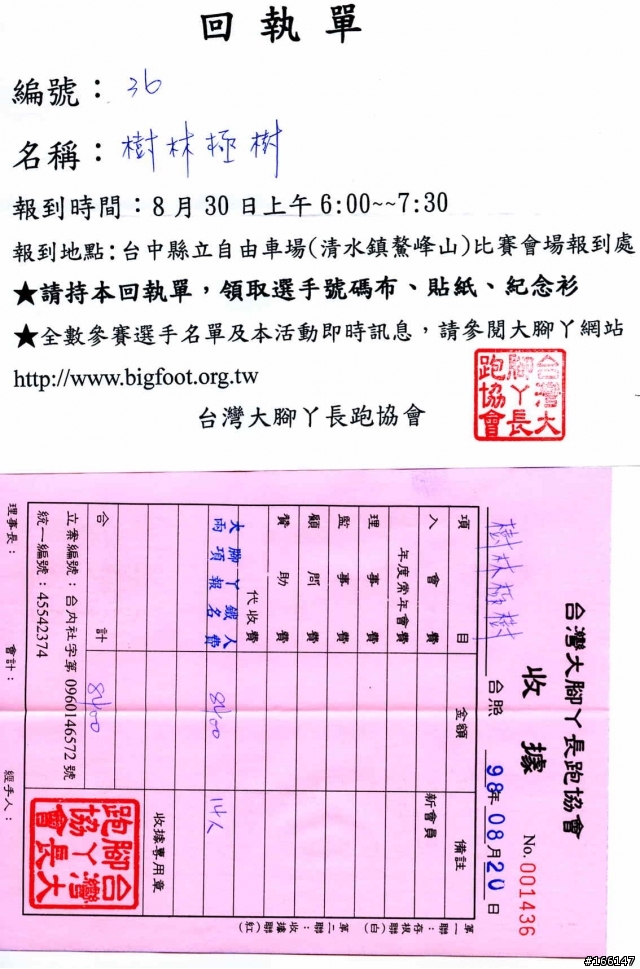 回執單
編號：36
名稱：樹林極樹
報到時間：8月30日上午6:00~~7:30
報到地點:台中縣立自由車場(清水鎮鰲峰山)比賽會場報到處
★請持本回執單，領取選手號碼布、貼紙、紀念衫
★全數參賽選手名單及本活動即時訊息，請參閱大腳丫網站
http://www.bigfoot.org.tw
台灣大腳丫長跑協會
台灣大腳丫長跑協會
台灣大腳丫長跑協會
收據
No. 001436
樹林極樹 台照
98年08月20日
項目 金額 備註
入會費 新會員
年度常年會費
理事費
監事費
顧問費
贊助費
代收費
大腳丫鐵人兩項報名費 8400 14人
合計 8400
收據專用章
台灣大腳丫長跑協會
立案編號：台內社字第 0960146572 號
統一編號：45542374
理事長： 會計： 經手人：
第一聯：存根聯(白) 第二聯：收據聯(紅)
#166147